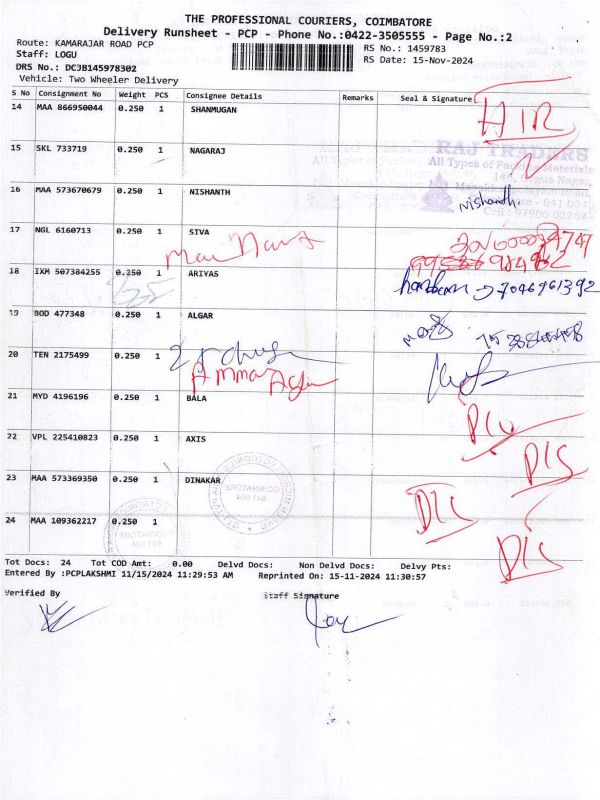 THE PROFESSIONAL COURIERS, COIMBATORE
Delivery Runsheet - PCP - Phone No.:0422-3505555 - Page No.:2
Route: KAMARAJAR ROAD PCP
RS No.: 1459783
Staff: LOGU
RS Date: 15-Nov-2024
DRS No.: DCJB145978302
Vehicle: Two Wheeler Delivery
S No Consignment No Weight PCS Consignee Details Remarks Seal & Signature
14 MAA 866950044 0.250 1 SHANMUGAN
15 SKL 733719 0.250 1 NAGARAJ
RAJ TRADERS
All Types of Packing Materials
16 MAA 573670679 0.250 1 NISHANTH Nishanth
17 NGL 6160713 0.250 1 SIVA
18 IXM 507384255 0.250 1 ARIYAS
19 BOD 477348 0.250 1 ALGAR
20 TEN 2175499 0.250 1
21 MYD 4196196 0.250 1 BALA
22 VPL 225410823 0.250 1 AXIS DIS
23 MAA 573369350 0.250 1 DINAKAR DIS
24 MAA 109362217 0.250 1 DIS
Tot Docs: 24 Tot COD Amt: 0.00 Delvd Docs: Non Delvd Docs: Delvy Pts:
Entered By :PCPLAKSHMI 11/15/2024 11:29:53 AM Reprinted On: 15-11-2024 11:30:57
Verified By Staff Signature